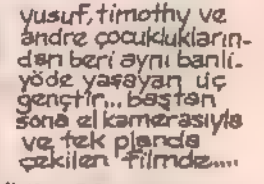 yusuf, timothy ve
andre çocuklukların-
dan beri aynı banli-
yöde yaşayan üç
gençtir... baştan
sona el kamerasıyla
ve tek planda
çekilen filmde.....